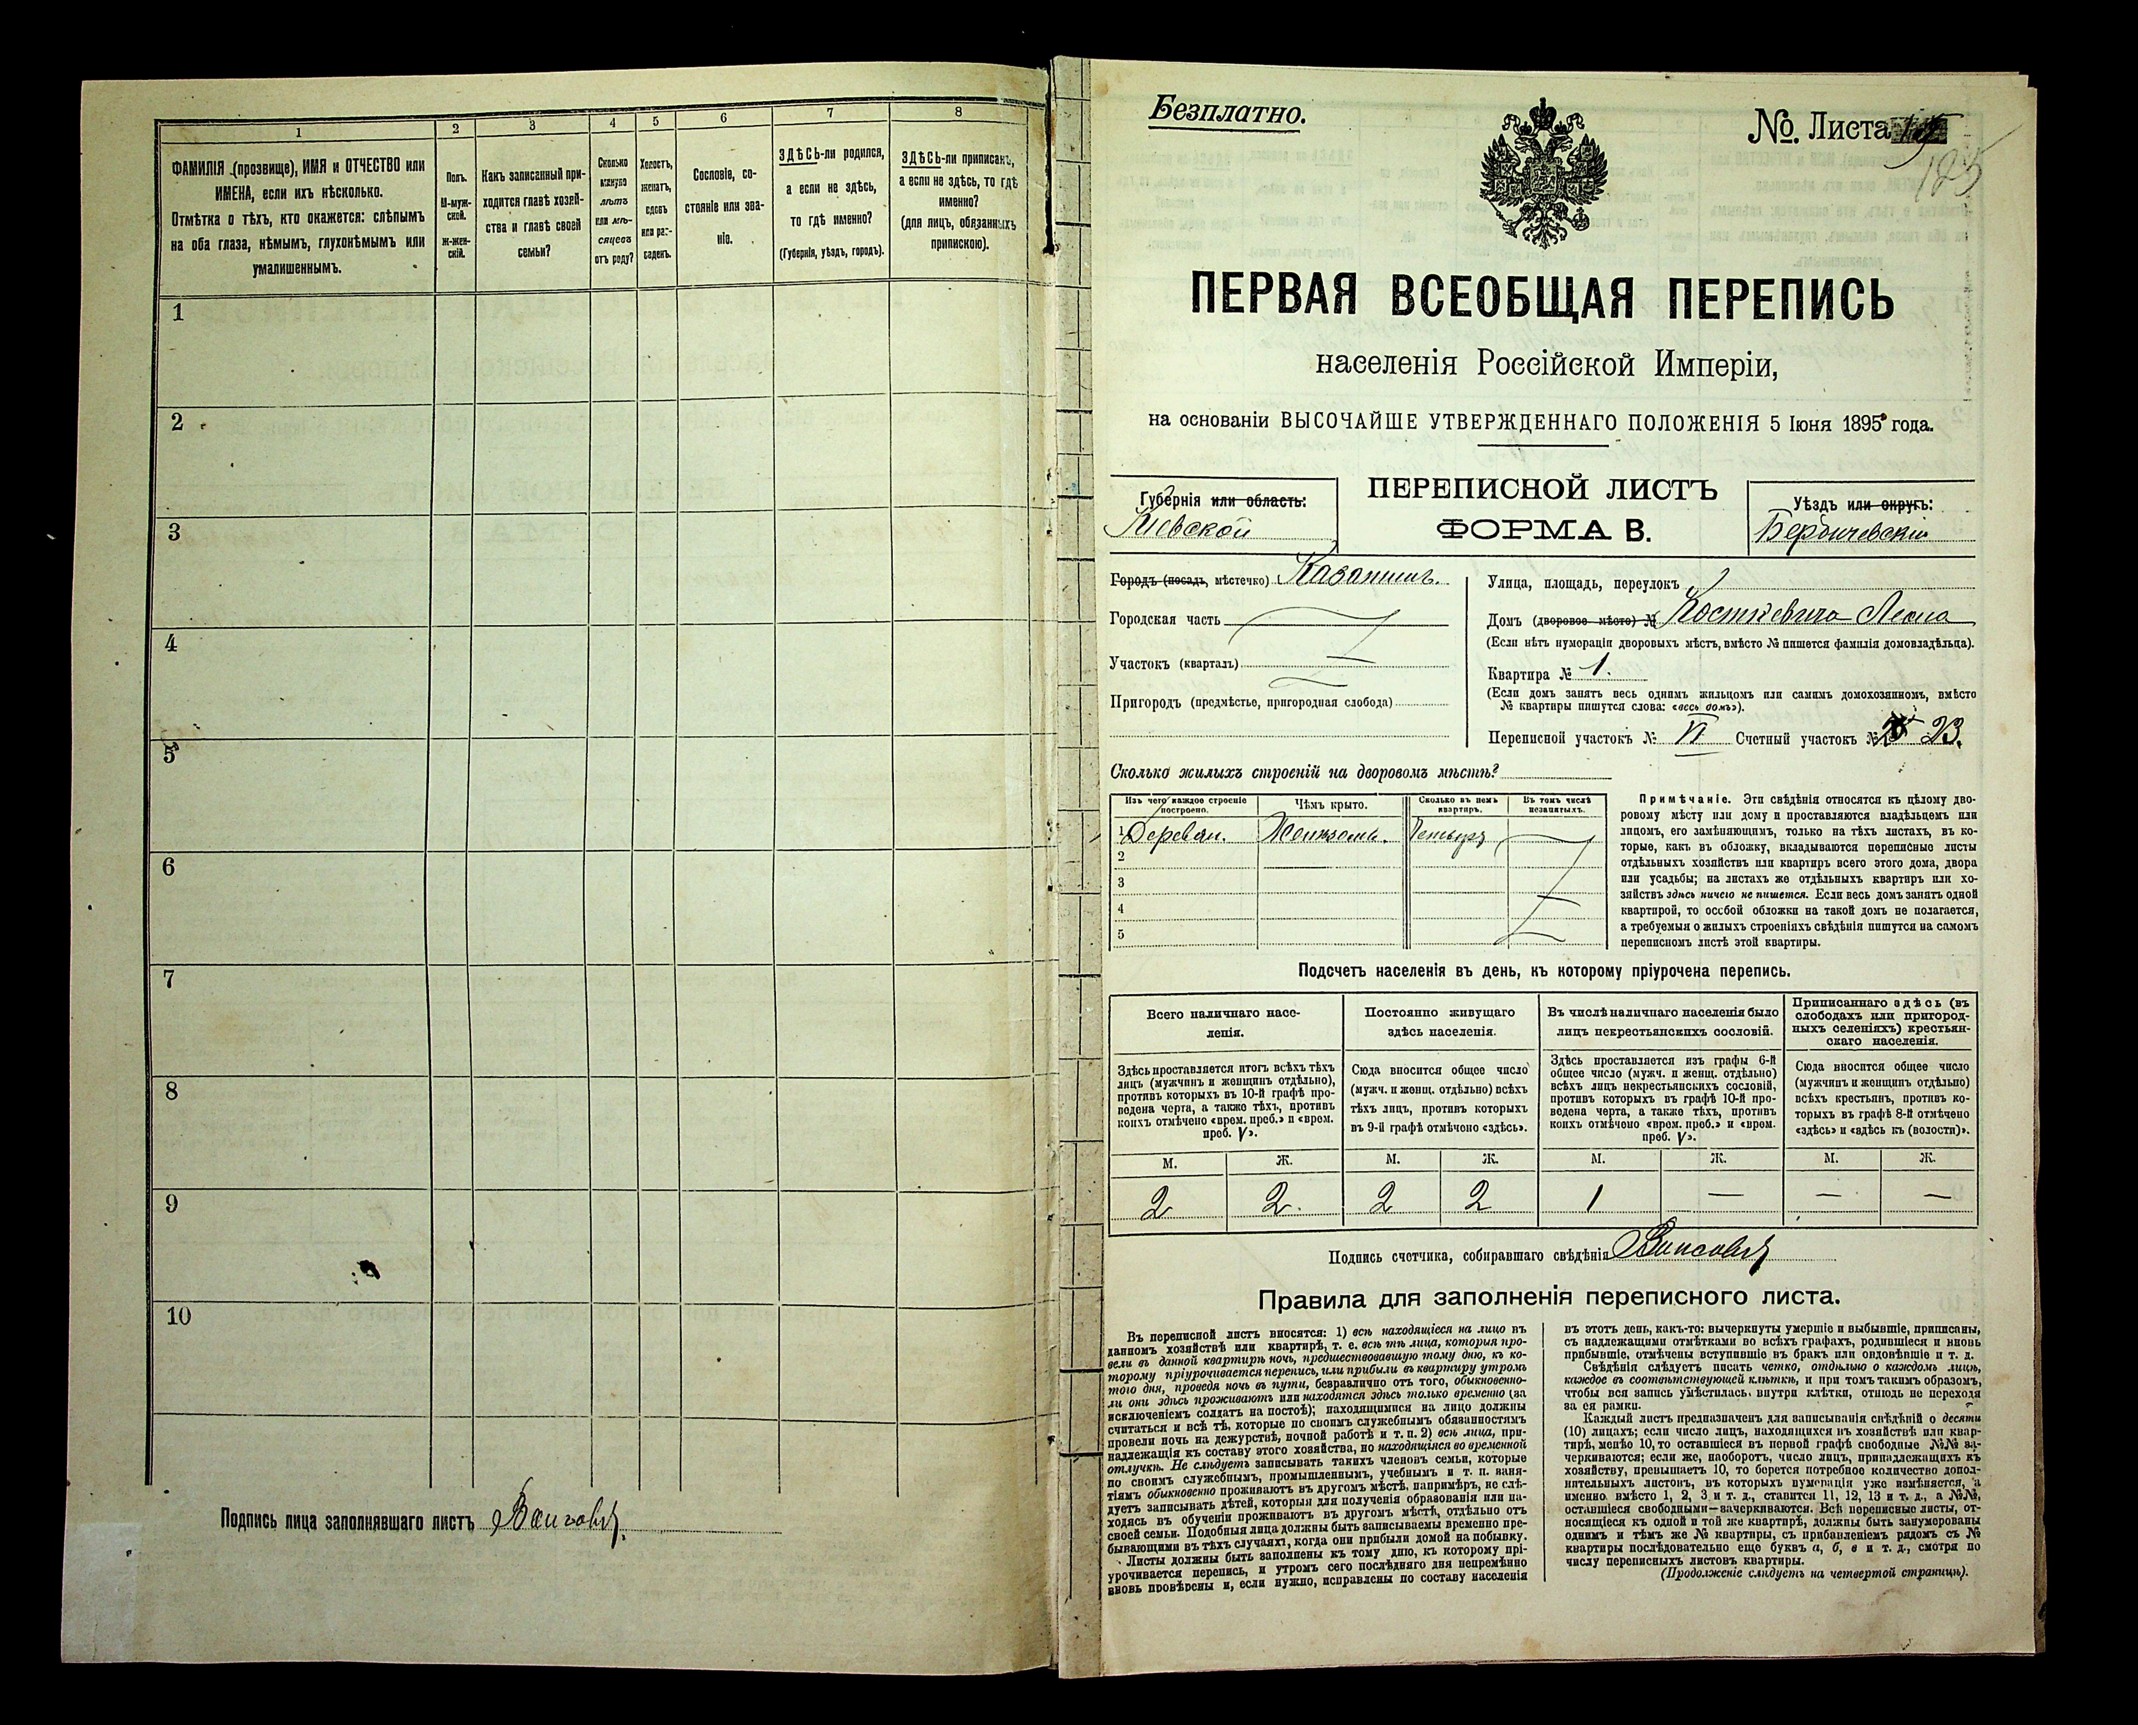 1
2
3
4
5
6
7
8
ФАМИЛІЯ (прозвище), ИМЯ и ОТЧЕСТВО или
ИМЕНА, если ихъ нѣсколько.
Отмѣтка о тѣхъ, кто окажется: слѣпымъ
на оба глаза, нѣмымъ, глухонѣмымъ или
умалишеннымъ.
Полъ.
М-муж-
ской.
Ж-жен-
скій.
Какъ записанный при-
ходится главѣ хозяй-
ства и главѣ своей
семьи?
Сколько
минуло
лѣтъ
или мѣ-
сяцевъ
отъ роду?
Холостъ,
женатъ,
вдовъ
или раз-
веденъ.
Сословіе, со-
стояніе или зва-
ніе.
ЗДѢСЬ-ли родился,
а если не здѣсь,
то гдѣ именно?
(Губернія, уѣздъ, городъ).
ЗДѢСЬ-ли приписанъ,
а если не здѣсь, то гдѣ
именно?
(для лицъ, обязанныхъ
припискою).
1
2
3
4
5
6
7
8
9
10
Подпись лица заполнявшаго листъ
Безплатно.
№. Листа
125
ПЕРВАЯ ВСЕОБЩАЯ ПЕРЕПИСЬ
населенія Россійской Имперіи,
на основаніи ВЫСОЧАЙШЕ УТВЕРЖДЕННАГО ПОЛОЖЕНІЯ 5 Іюня 1895 года.
Губернія или область:
Кіевской
ПЕРЕПИСНОЙ ЛИСТЪ
ФОРМА В.
Уѣздъ или округъ:
Бердичевскій
Городъ (посадъ, мѣстечко) Казатинъ.
Городская часть
Участокъ (кварталъ)
Пригородъ (предмѣстье, пригородная слобода)
Улица, площадь, переулокъ
Домъ (дворовое мѣсто) № Косткевича Леона
(Если нѣтъ нумераціи дворовыхъ мѣстъ, вмѣсто № пишется фамилія домовладѣльца).
Квартира № 1.
(Если домъ занятъ весь однимъ жильцомъ или самимъ домохозяиномъ, вмѣсто
№ квартиры пишутся слова: «весь домъ»).
Переписной участокъ № VI Счетный участокъ № 23.
Сколько жилыхъ строеній на дворовомъ мѣстѣ?
Изъ чего каждое строеніе
построено.
Чѣмъ крыто.
Сколько въ немъ
квартиръ.
Въ томъ числѣ
незанятыхъ.
1 Деревян. Желѣзомъ. Четыре
2
3
4
5
Примѣчаніе. Эти свѣдѣнія относятся къ цѣлому дво-
ровому мѣсту или дому и проставляются владѣльцемъ или
лицомъ, его замѣняющимъ, только на тѣхъ листахъ, въ ко-
торые, какъ въ обложку, вкладываются переписные листы
отдѣльныхъ хозяйствъ или квартиръ всего этого дома, двора
или усадьбы; на листахъ же отдѣльныхъ квартиръ или хо-
зяйствъ здѣсь ничего не пишется. Если весь домъ занятъ одной
квартирой, то особой обложки на такой домъ не полагается,
а требуемыя о жилыхъ строеніяхъ свѣдѣнія пишутся на самомъ
переписномъ листѣ этой квартиры.
Подсчетъ населенія въ день, къ которому пріурочена перепись.
Всего наличнаго насе-
ленія.
Постоянно живущаго
здѣсь населенія.
Въ числѣ наличнаго населенія было
лицъ некрестьянскихъ сословій.
Приписаннаго здѣсь (въ
слободахъ или пригород-
ныхъ селеніяхъ) крестьян-
скаго населенія.
Здѣсь проставляется итогъ всѣхъ тѣхъ
лицъ (мужчинъ и женщинъ отдѣльно),
противъ которыхъ въ 10-й графѣ про-
ведена черта, а также тѣхъ, противъ
коихъ отмѣчено «врем. преб.» и «врем.
преб. V».
Сюда вносится общее число
(мужч. и женщ. отдѣльно) всѣхъ
тѣхъ лицъ, противъ которыхъ
въ 9-й графѣ отмѣчено «здѣсь».
Здѣсь проставляется изъ графы 6-й
общее число (мужч. и женщ. отдѣльно)
всѣхъ лицъ некрестьянскихъ сословій,
противъ которыхъ въ графѣ 10-й про-
ведена черта, а также тѣхъ, противъ
коихъ отмѣчено «врем. преб.» и «врем.
преб. V».
Сюда вносится общее число
(мужчинъ и женщинъ отдѣльно)
всѣхъ крестьянъ, противъ ко-
торыхъ въ графѣ 8-й отмѣчено
«здѣсь» и «здѣсь къ (волости)».
М. Ж. М. Ж. М. Ж. М. Ж.
2 2. 2 2 1 — — —
Подпись счетчика, собиравшаго свѣдѣнія
Правила для заполненія переписного листа.
Въ переписной листъ вносятся: 1) всѣ находящіеся на лицо въ
данномъ хозяйствѣ или квартирѣ, т. е. всѣ тѣ лица, которыя про-
вели въ данной квартирѣ ночь, предшествовавшую тому дню, къ ко-
торому пріурочивается перепись, или прибыли въ квартиру утромъ
того дня, проведя ночь въ пути, безразлично отъ того, обыкновенно-
ли они здѣсь проживаютъ или находятся здѣсь только временно (за
исключеніемъ солдатъ на постоѣ); находящимися на лицо должны
считаться и всѣ тѣ, которые по своимъ служебнымъ обязанностямъ
провели ночь на дежурствѣ, ночной работѣ и т. п. 2) всѣ лица, при-
надлежащія къ составу этого хозяйства, но находящіяся во временной
отлучкѣ. Не слѣдуетъ записывать такихъ членовъ семьи, которые
по своимъ служебнымъ, промышленнымъ, учебнымъ и т. п. заня-
тіямъ обыкновенно проживаютъ въ другомъ мѣстѣ, напримѣръ, не слѣ-
дуетъ записывать дѣтей, которыя для полученія образованія или на-
ходясь въ обученіи проживаютъ въ другомъ мѣстѣ, отдѣльно отъ
своей семьи. Подобныя лица должны быть записываемы временно пре-
бывающими въ тѣхъ случаяхъ, когда они прибыли домой на побывку.
Листы должны быть заполнены къ тому дню, къ которому прі-
урочивается перепись, и утромъ сего послѣдняго дня непремѣнно
вновь провѣрены и, если нужно, исправлены по составу населенія
въ этотъ день, какъ-то: вычеркнуты умершіе и выбывшіе, приписаны,
съ надлежащими отмѣтками во всѣхъ графахъ, родившіеся и вновь
прибывшіе, отмѣчены вступившіе въ бракъ или овдовѣвшіе и т. д.
Свѣдѣнія слѣдуетъ писать четко, отдѣльно о каждомъ лицѣ,
каждое въ соотвѣтствующей клѣткѣ, и при томъ такимъ образомъ,
чтобы вся запись умѣстилась внутри клѣтки, отнюдь не переходя
за ея рамки.
Каждый листъ предназначенъ для записыванія свѣдѣній о десяти
(10) лицахъ; если число лицъ, находящихся въ хозяйствѣ или квар-
тирѣ, менѣе 10, то оставшіеся въ первой графѣ свободные №№ за-
черкиваются; если же, наоборотъ, число лицъ, принадлежащихъ къ
хозяйству, превышаетъ 10, то берется потребное количество допол-
нительныхъ листовъ, въ которыхъ нумерація уже измѣняется, а
именно вмѣсто 1, 2, 3 и т. д., ставится 11, 12, 13 и т. д., а №№,
оставшіеся свободными—зачеркиваются. Всѣ переписные листы, от-
носящіеся къ одной и той же квартирѣ, должны быть занумерованы
однимъ и тѣмъ же № квартиры, съ прибавленіемъ рядомъ съ №
квартиры послѣдовательно еще буквъ а, б, в и т. д., смотря по
числу переписныхъ листовъ квартиры.
(Продолженіе слѣдуетъ на четвертой страницѣ).